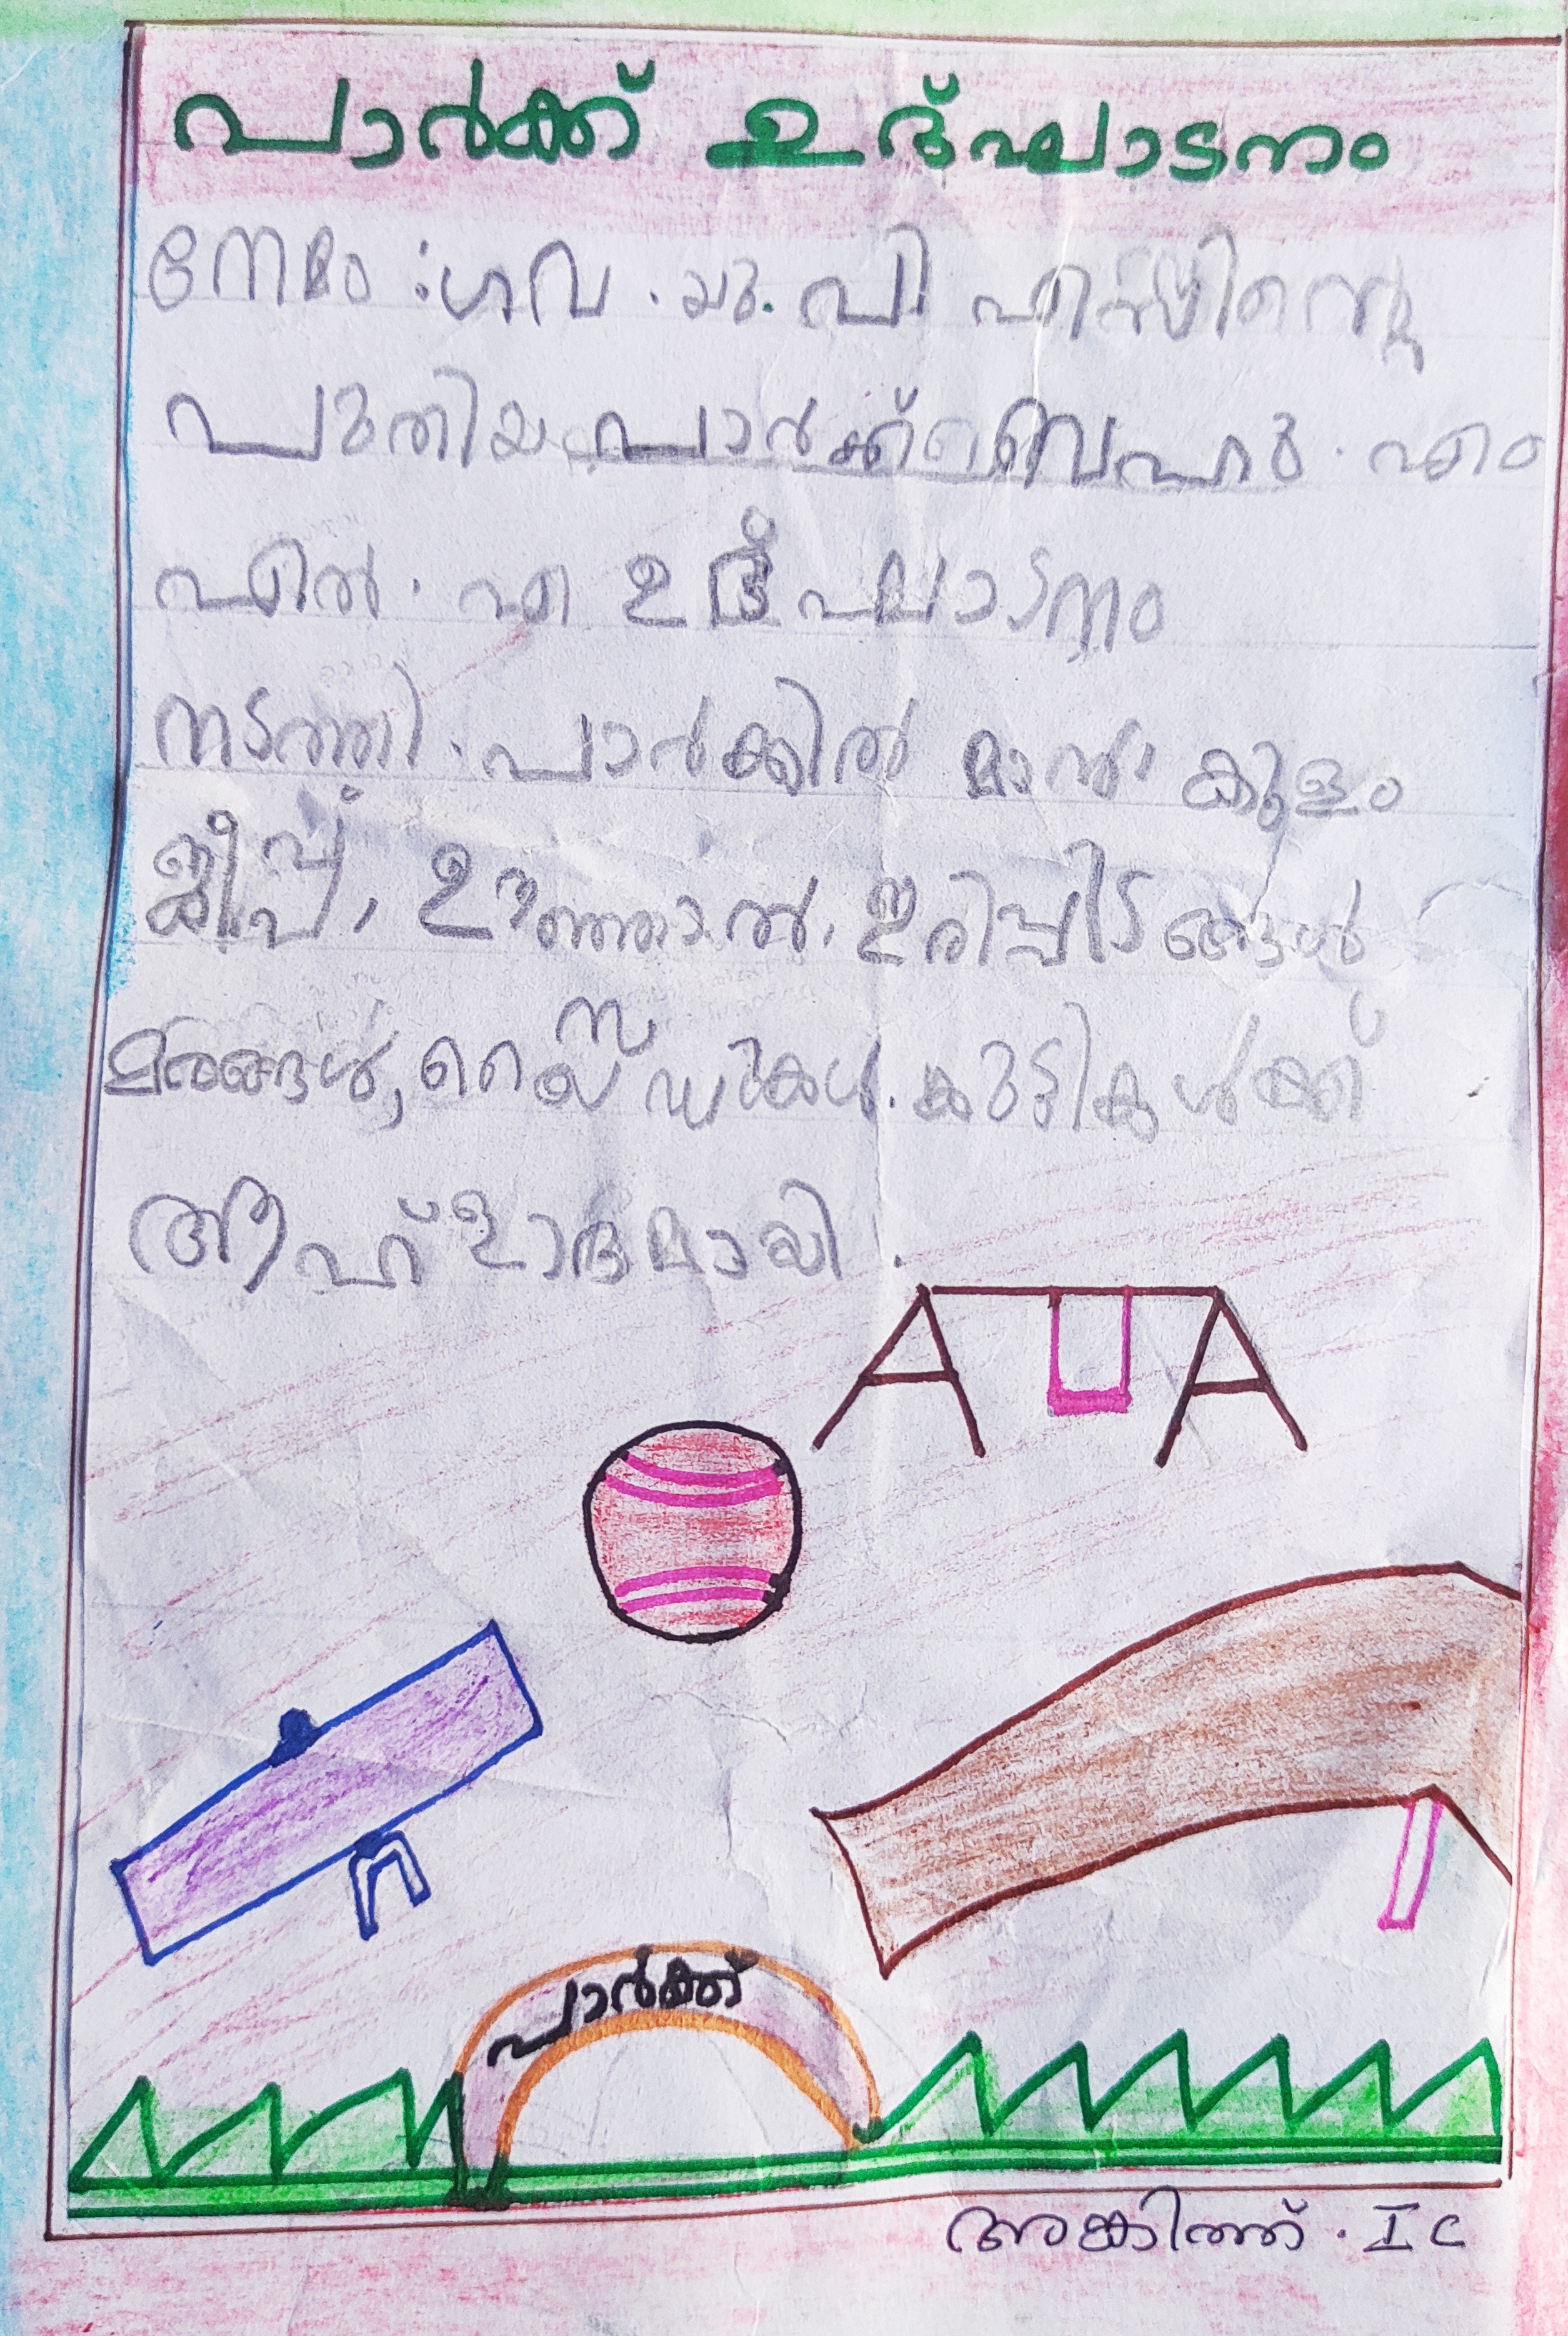 പാർക്ക് ഉദ്ഘാടനം
നേമം : ഗവ . യു. പി എസിന്റെ
പുതിയ പാർക്ക് ബെഹു . എം
എൽ . എ ഉദ്ഘാടനം
നടത്തി . പാർക്കിൽ മാൻ, കുളം
ജീപ്പ്, ഉഞ്ഞാൽ, ഇരിപ്പിടങ്ങൾ
മരങ്ങൾ, കുട്ടികൾക്ക്
ആഹ്ളാദമായി .
പാർക്ക്
അങ്കിത്ത് . I C